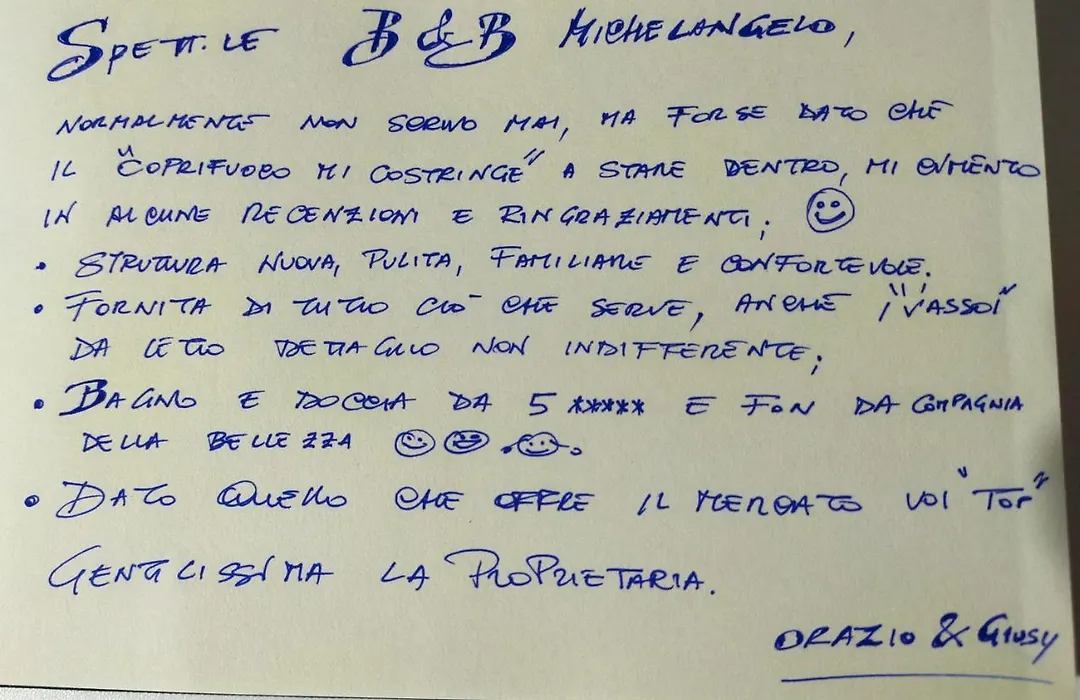 SPETT.LE B&B MICHELANGELO,
NORMALMENTE NON SCRIVO MAI, MA FORSE DATO CHE
IL "COPRIFUOCO MI COSTRINGE" A STARE DENTRO, MI CIMENTO
IN ALCUNE RECENZIONI E RINGRAZIAMENTI; ☺
• STRUTTURA NUOVA, PULITA, FAMILIARE E CONFORTEVOLE.
• FORNITA DI TUTTO CIÒ CHE SERVE, ANCHE I "VASSOI"
DA LETTO DETTAGLIO NON INDIFFERENTE;
• BAGNO E DOCCIA DA 5 ***** E FON DA COMPAGNIA
DELLA BELLEZZA
• DATO QUELLO CHE OFFRE IL MERCATO VOI "TOP"
GENTILISSIMA LA PROPRIETARIA.
ORAZIO & GIUSY